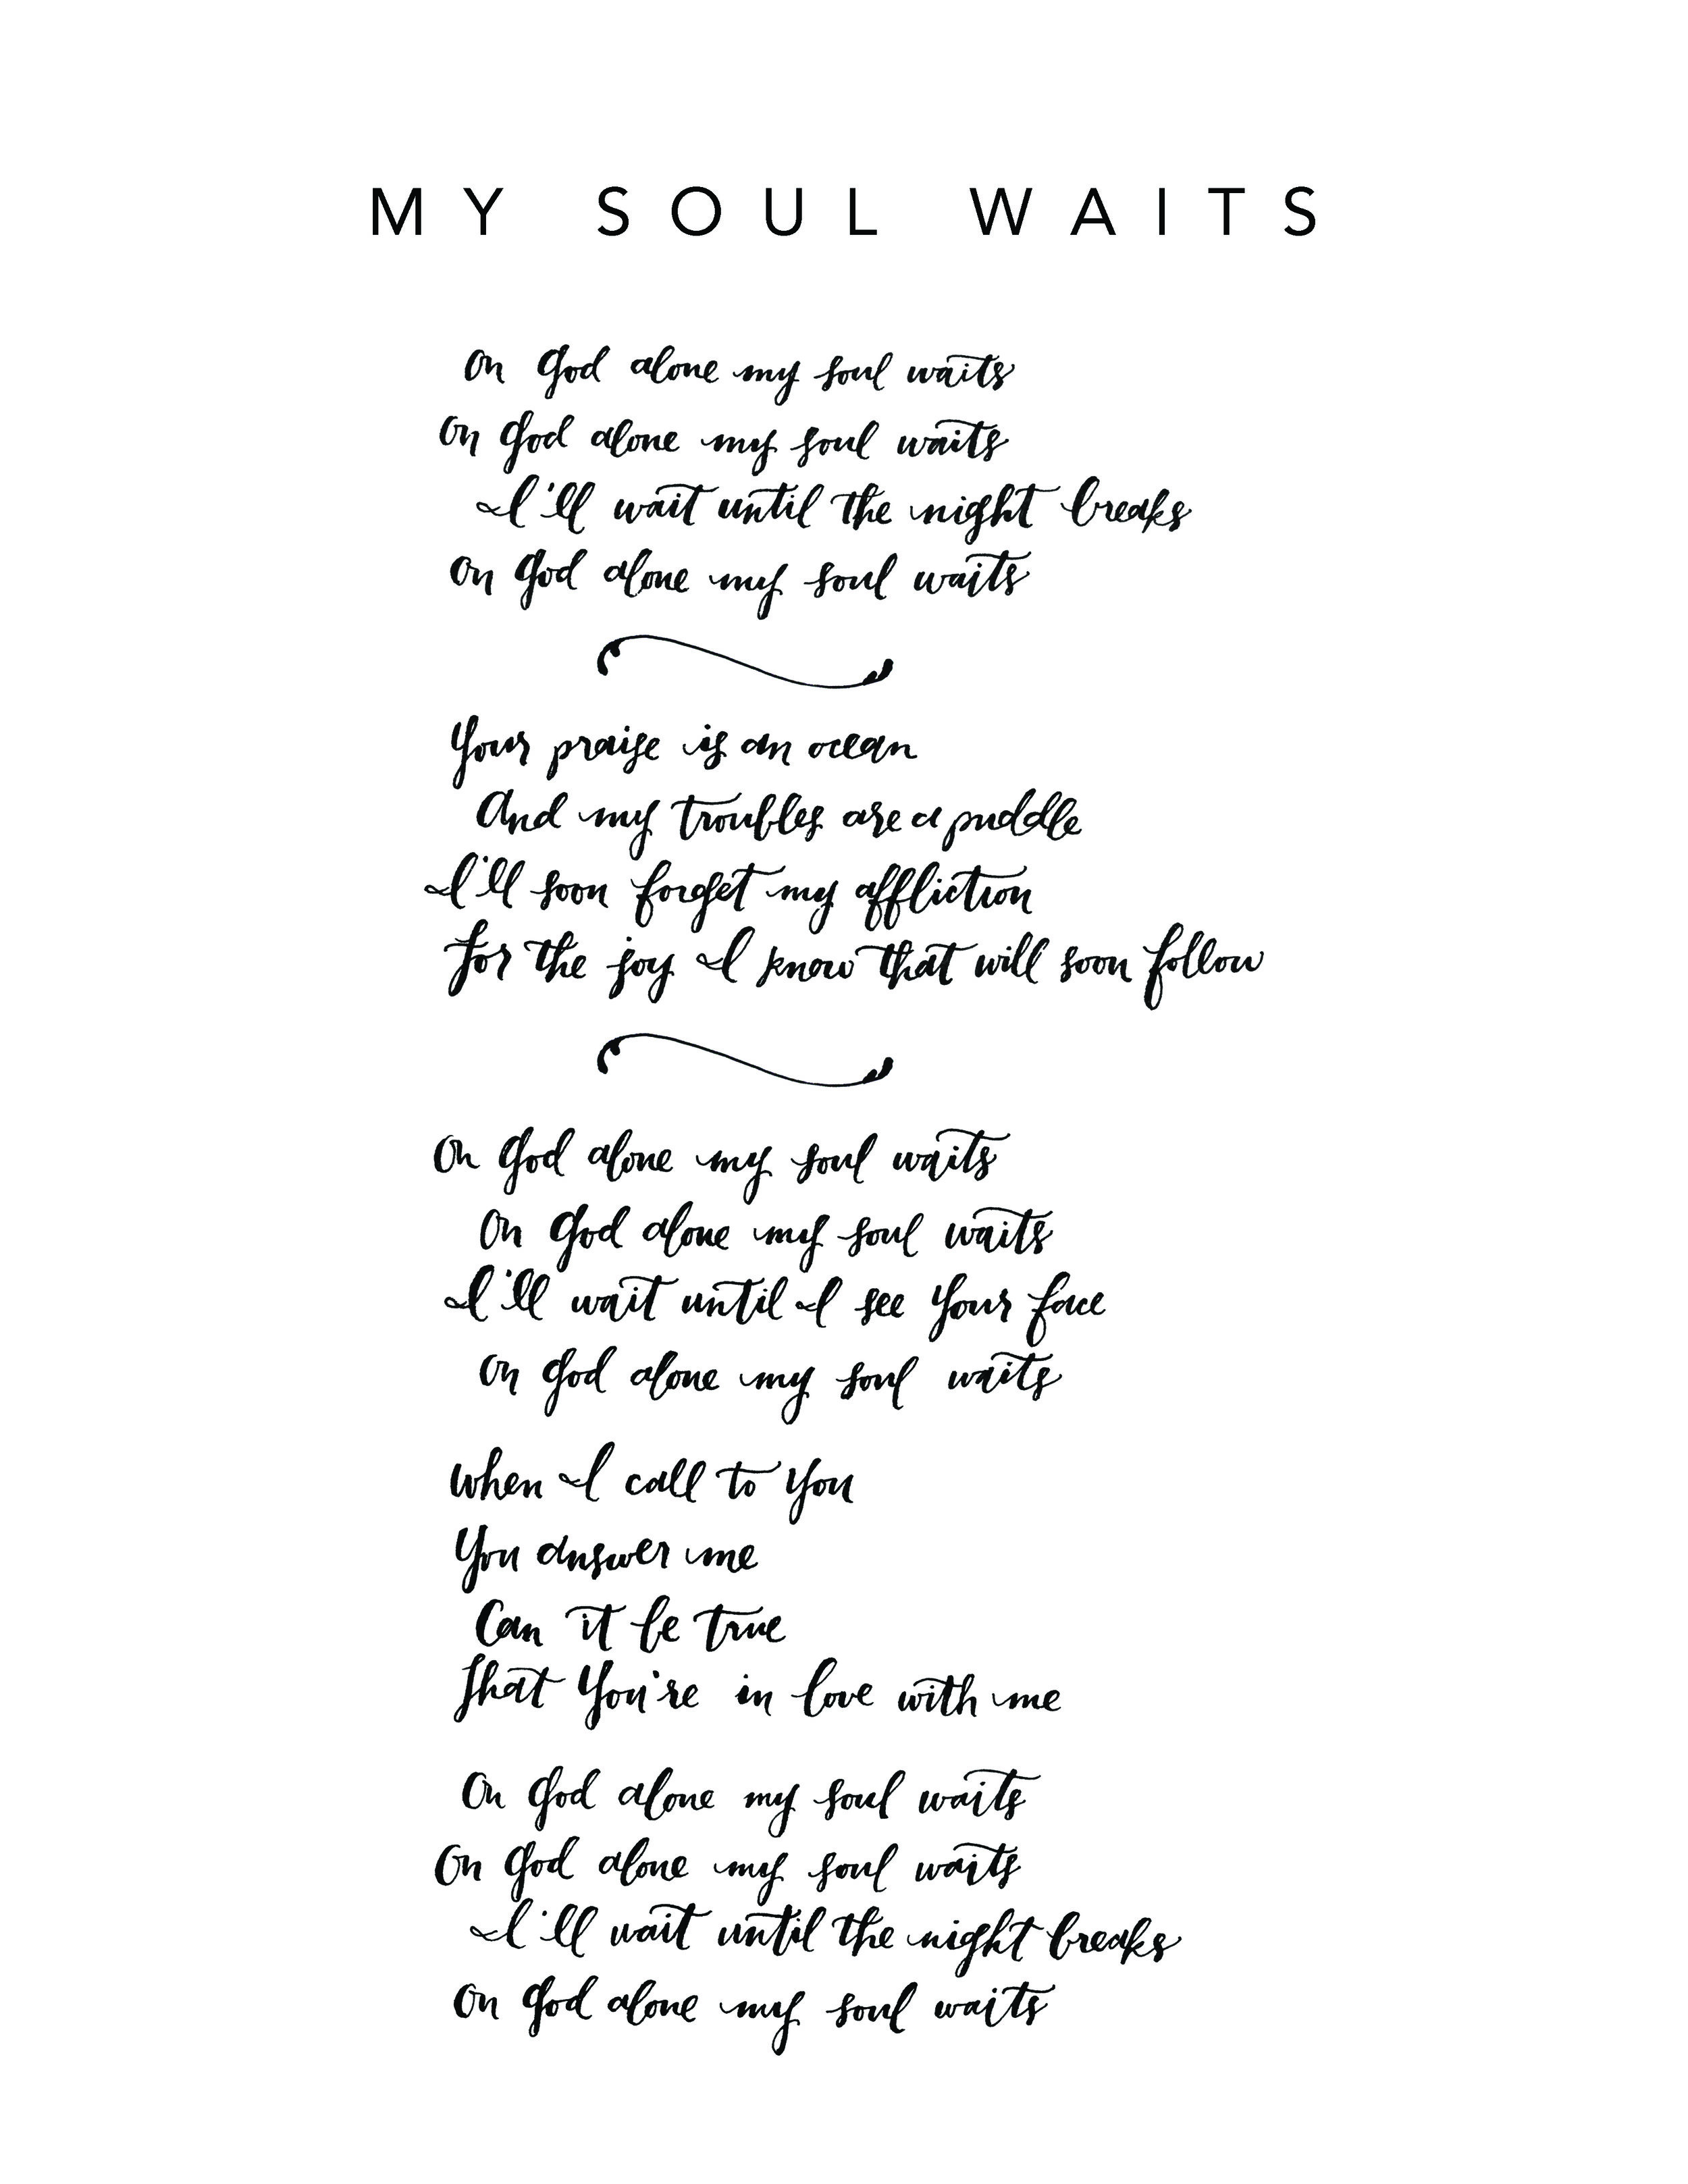 MY SOUL WAITS
On God alone my soul waits
On God alone my soul waits
I'll wait until the night breaks
On God alone my soul waits
Your praise is an ocean
And my troubles are a puddle
I'll soon forget my affliction
For the joy I know that will soon follow
On God alone my soul waits
On God alone my soul waits
I'll wait until I see Your face
On God alone my soul waits
When I call to You
You answer me
Can it be true
That You're in love with me
On God alone my soul waits
On God alone my soul waits
I'll wait until the night breaks
On God alone my soul waits